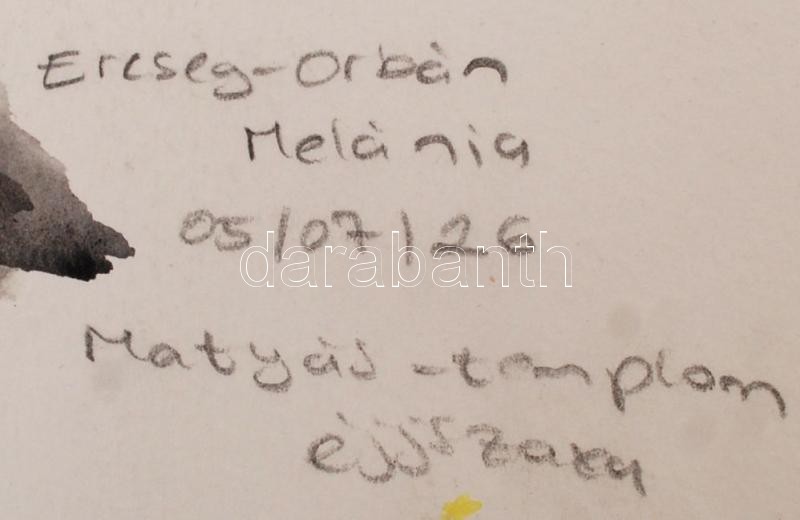 Ercseg-Orbán
Melánia
05/07/26
darabanth
Matyás-templom
éjjszaka